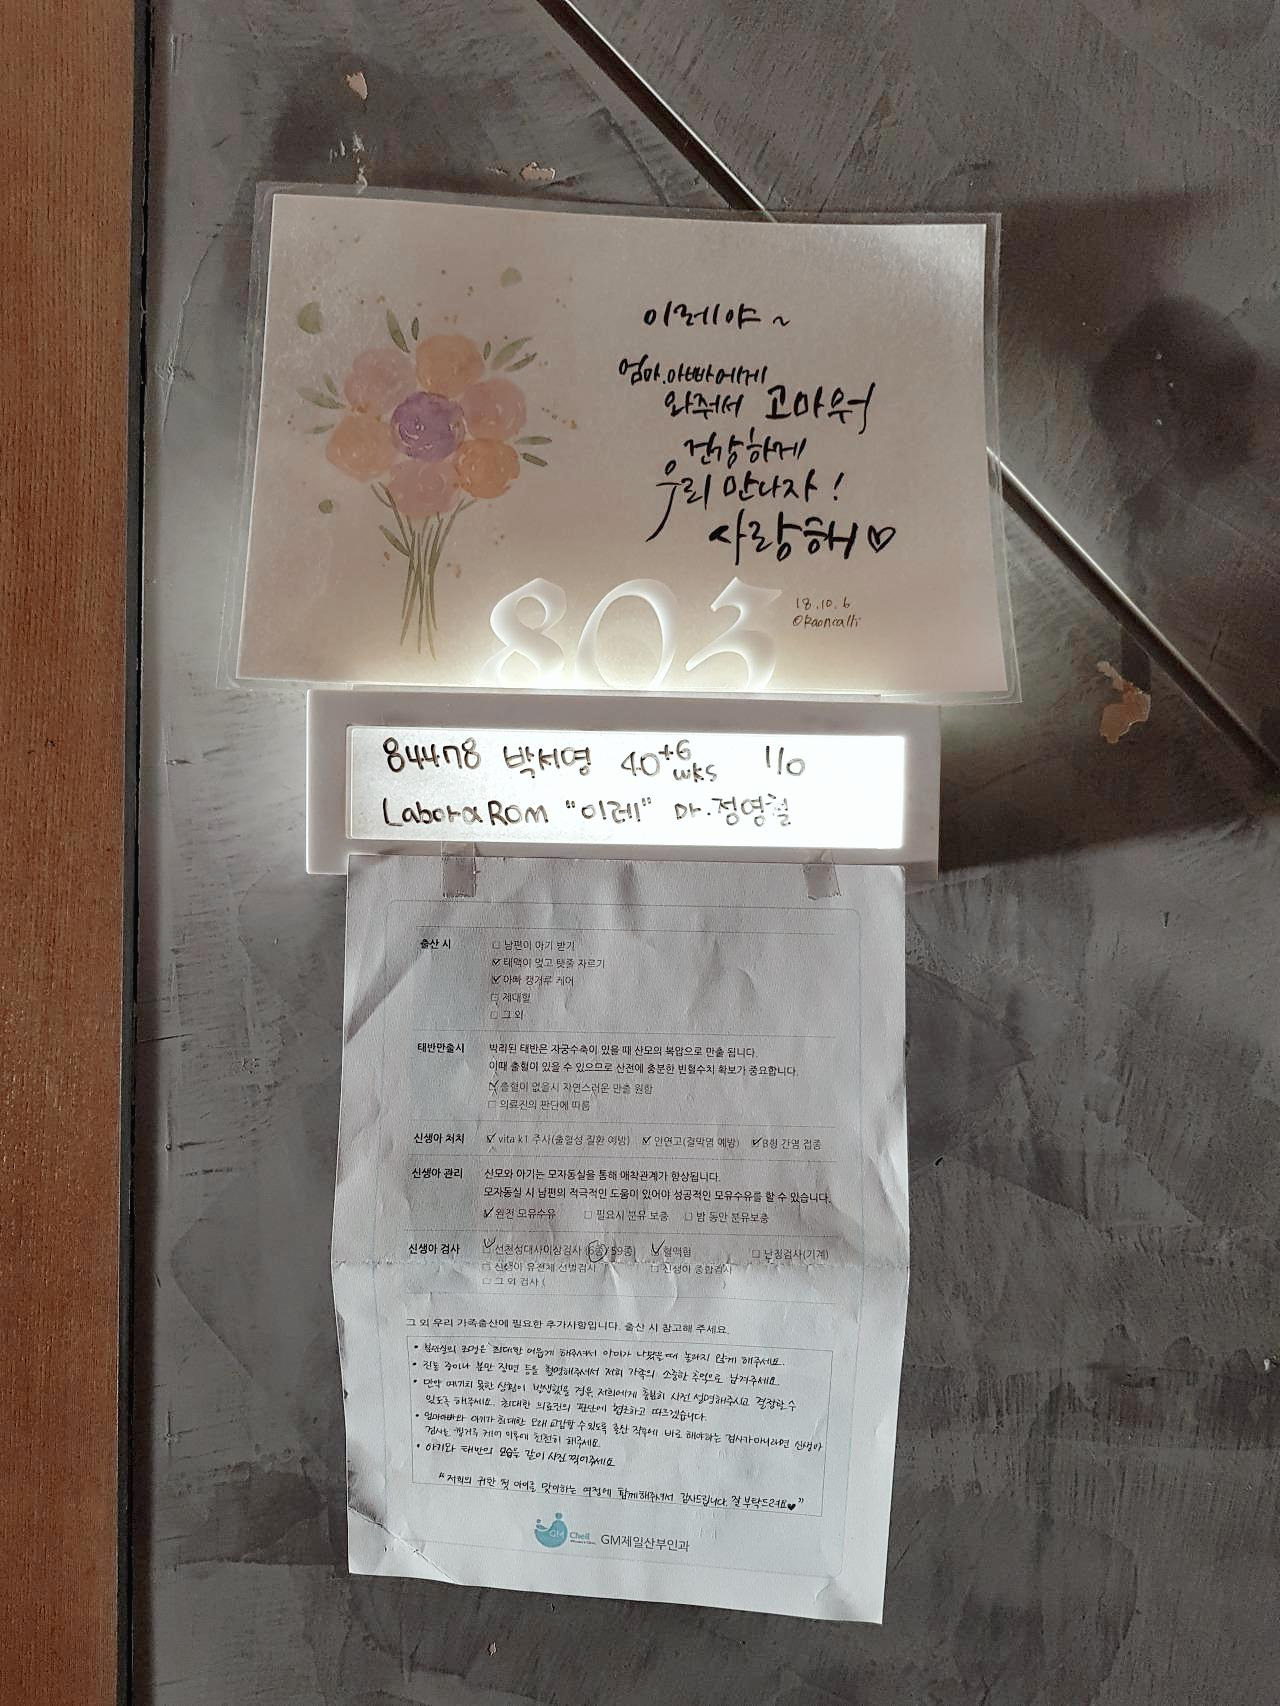 이레야~
엄마.아빠에게
와줘서 고마워
건강하게
우리 만나자!
사랑해♡
803
18.10.6
84478 박서영 40+6 wks 1/0
Labor α ROM "이레" Dr.정영철
출산 시
□ 남편이 아기 받기
☑ 태맥이 멎고 탯줄 자르기
☑ 아빠 캥거루 케어
□ 제대혈
□ 그 외
태반만출시 박리된 태반은 자궁수축이 있을 때 산모의 복압으로 만출 됩니다.
이때 출혈이 있을 수 있으므로 산전에 충분한 빈혈수치 확보가 중요합니다.
☑ 출혈이 없을시 자연스러운 만출 원함
□ 의료진의 판단에 따름
신생아 처치 ☑ vita k1 주사(출혈성 질환 예방) ☑ 안연고(결막염 예방) ☑ B형 간염 접종
신생아 관리 산모와 아기는 모자동실을 통해 애착관계가 향상됩니다.
모자동실 시 남편의 적극적인 도움이 있어야 성공적인 모유수유를 할 수 있습니다.
☑ 완전 모유수유 □ 필요시 분유 보충 □ 밤 동안 분유보충
신생아 검사 ☑ 선천성대사이상검사 (6종/59종) ☑ 혈액형 □ 난청검사(기계)
□ 신생아 유전체 선별검사 □ 신생아 종합검사
□ 그 외 검사 (
그 외 우리 가족출산에 필요한 추가사항입니다. 출산 시 참고해 주세요.
• 분만실의 조명은 최대한 어둡게 해주셔서 아이가 나왔을 때 놀라지 않게 해주세요.
• 진통 중이나 분만 장면 등을 촬영해주셔서 저희 가족의 소중한 추억으로 남겨주세요.
• 만약 예기치 못한 상황이 발생했을 경우 저희에게 충분히 사전 설명해주시고 결정할 수
있도록 해주세요. 최대한 의료진의 판단에 협조하고 따르겠습니다.
• 엄마아빠와 아기가 최대한 오래 교감할 수 있도록 출산 직후에 바로 해야하는 검사가 아니라면 신생아
검사는 캥거루 케어 이후에 천천히 해주세요.
• 아기와 태반의 모습도 같이 사진 찍어주세요
"저희의 귀한 첫 아이를 맞이하는 여정에 함께해주셔서 감사드립니다. 잘 부탁드려요♥"
GM Cheil GM제일산부인과